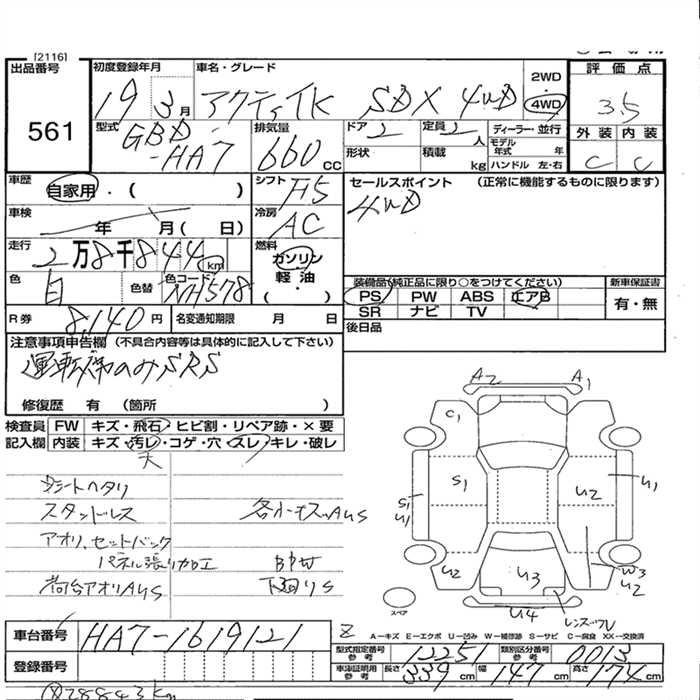 [2116]
出品番号 561
初度登録年月 19 3月
車名・グレード アクティTK SDX 4WD
2WD
4WD
評価点 3.5
外装 内装
C C
型式 GBD-HA7
排気量 660 CC
ドア 2 定員 2人 ディーラー・並行
形状 積載 kg モデル年式 年
ハンドル 左・右
車歴 自家用・( )
シフト F5
セールスポイント (正常に機能するものに限ります)
4WD
車検 年 月( 日)
冷房 AC
走行 2万8千844km
燃料 ガソリン
軽・油
・( )
色 白 色替 色コード NH578
装備品(純正品に限り○をつけてください) 新車保証書
PS PW ABS エアB 有・無
SR ナビ TV
R券 8,140円 名変通知期限 月 日
後日品
注意事項申告欄 (不具合内容等は具体的に記入して下さい)
運転席のみSRS
修復歴 有 (箇所 )
検査員 FW キズ・飛石・ヒビ割・リペア跡・×要
記入欄 内装 キズ・汚レ・コゲ・穴・スレ・キレ・破レ
天
シートヘタリ
スタンドレス
アオリ、セットバック
パネル張り加工
荷台アオリAUS
下回りS
A2 A1
C1
S1 U2 U1
S1
U1
U2 U3 W3
U2
U4
レンズワレ
スペア
A－キズ E－エクボ U－凹み W－補修跡 S－サビ C－腐食 XX－交換済
車台番号 HA7-1619121
型式指定番号 参考 12251 類別区分番号 参考 0013
登録番号
車庫証明用 参考 長さ 339cm 幅 147cm 高さ 174cm
28843km